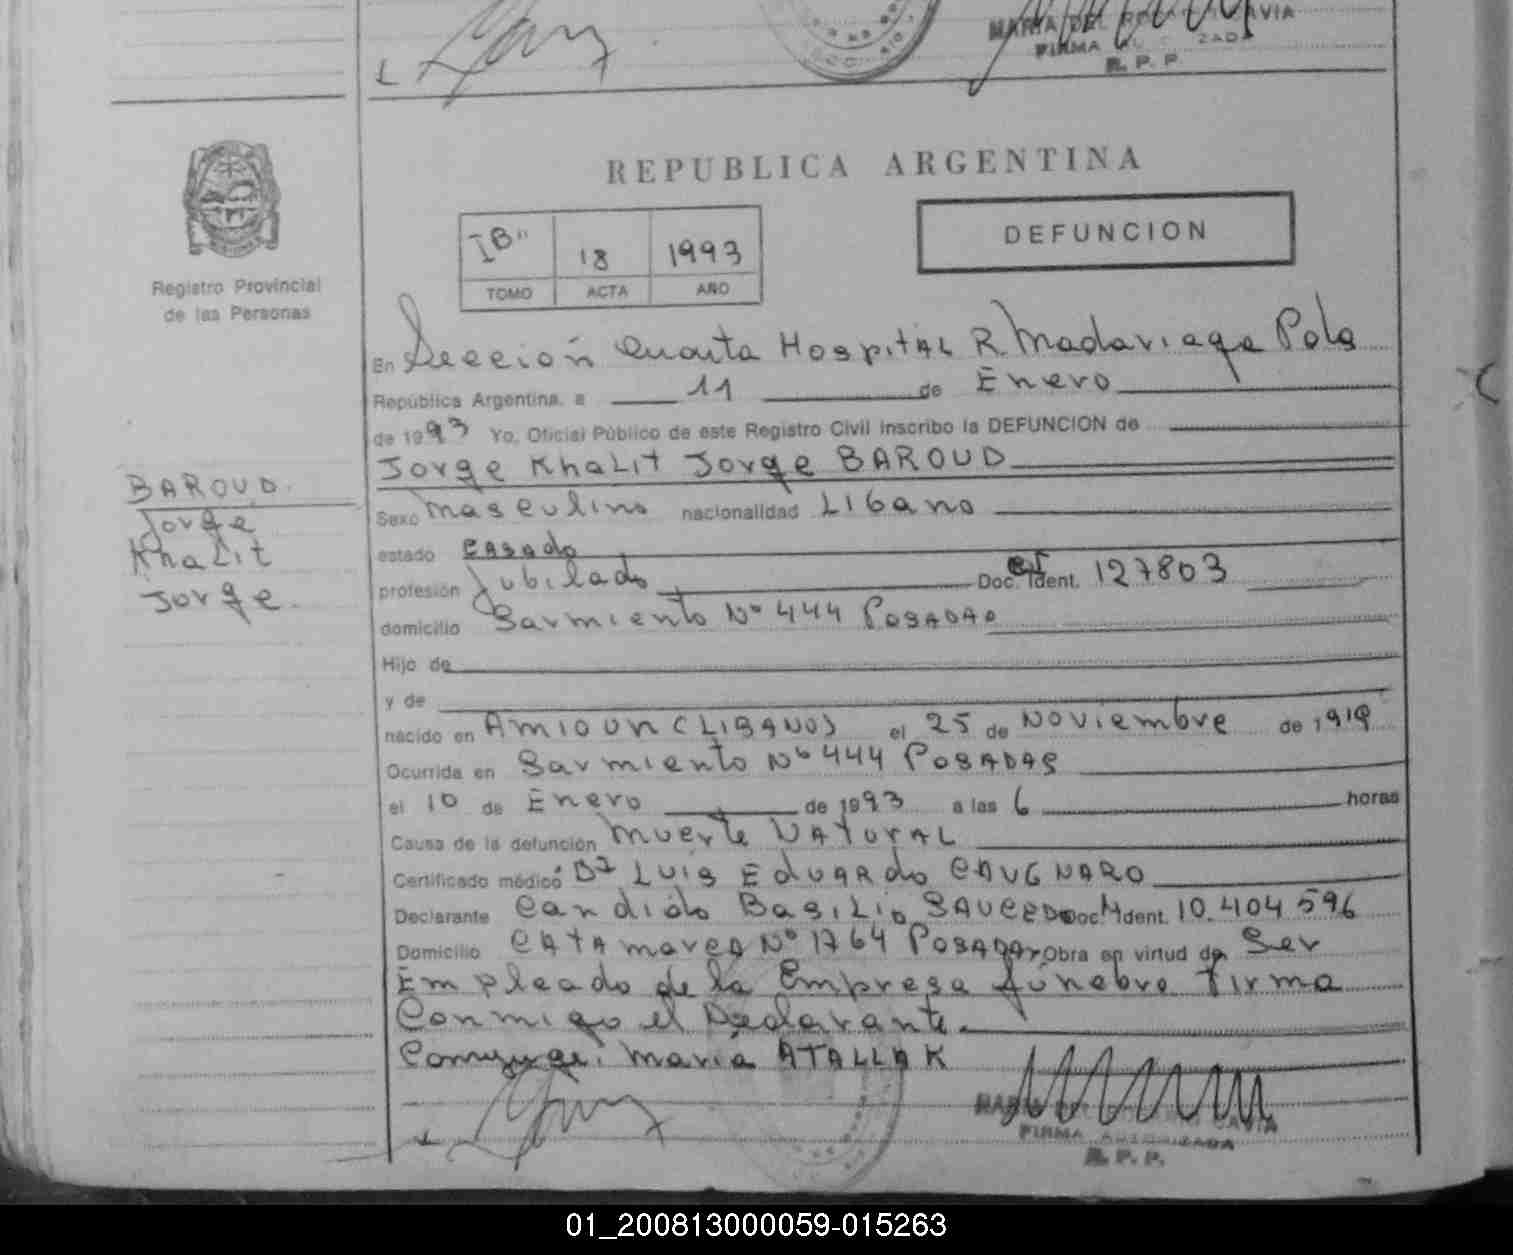 FIRMA
R. P. P.
REPUBLICA ARGENTINA
Registro Provincial
de las Personas
IB" 18 1993
TOMO ACTA AÑO
DEFUNCION
En Sección Cuarta Hospital R. Madariaga Pdas
República Argentina, a 11 de Enero
de 1993 Yo, Oficial Público de este Registro Civil inscribo la DEFUNCION de
Jorge Khalit Jorge BAROUD
BAROUD.
Jorge
Khalit
Jorge.
Sexo masculino nacionalidad Libano
estado casado
profesión Jubilado Doc. CI Ident. 127803
domicilio Sarmiento Nº 444 Posadas
Hijo de
y de
nacido en AMIOUN (LIBANO) el 25 de Noviembre de 1919
Ocurrida en Sarmiento Nº 444 POSADAS
el 10 de Enero de 1993 a las 6 horas
Causa de la defunción muerte NATURAL
Certificado médico Dr LUIS EDUARDO CAUGNARO
Declarante Candido Basilio SAUCEDO Doc. Ident. 10.404.596
Domicilio CATAmarca Nº 1764 POSADAS Obra en virtud de Ser
Empleado de la Empresa fúnebre firma
Conmigo el Declarante.
Conyuge. Maria ATALLAK
FIRMA AUTORIZADA
R. P. P.
01_200813000059-015263